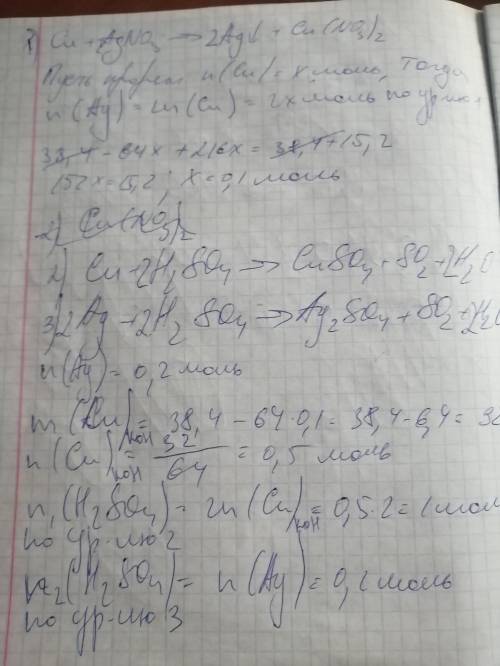 1) Cu + AgNO3 → 2Ag↓ + Cu(NO3)2
Пусть n(Cu) = x моль, тогда
n(Ag) = 2n(Cu) = 2x моль по ур-ю
38,4 - 64x + 216x = 38,4 + 15,2
152x = 15,2; x = 0,1 моль
2) Cu(NO3)2
2) Cu + 2H2SO4 → CuSO4 + SO2 + 2H2O
3) 2Ag + 2H2SO4 → Ag2SO4 + SO2 + 2H2O
n(Ag) = 0,2 моль
m(Cu)кон = 38,4 - 64·0,1 = 38,4 - 6,4 = 32
n(Cu)кон = 32/64 = 0,5 моль
n1(H2SO4) = 2n(Cu)кон = 0,5·2 = 1 моль
по ур-лю 2
n2(H2SO4) = n(Ag) = 0,2 моль
по ур-лю 3